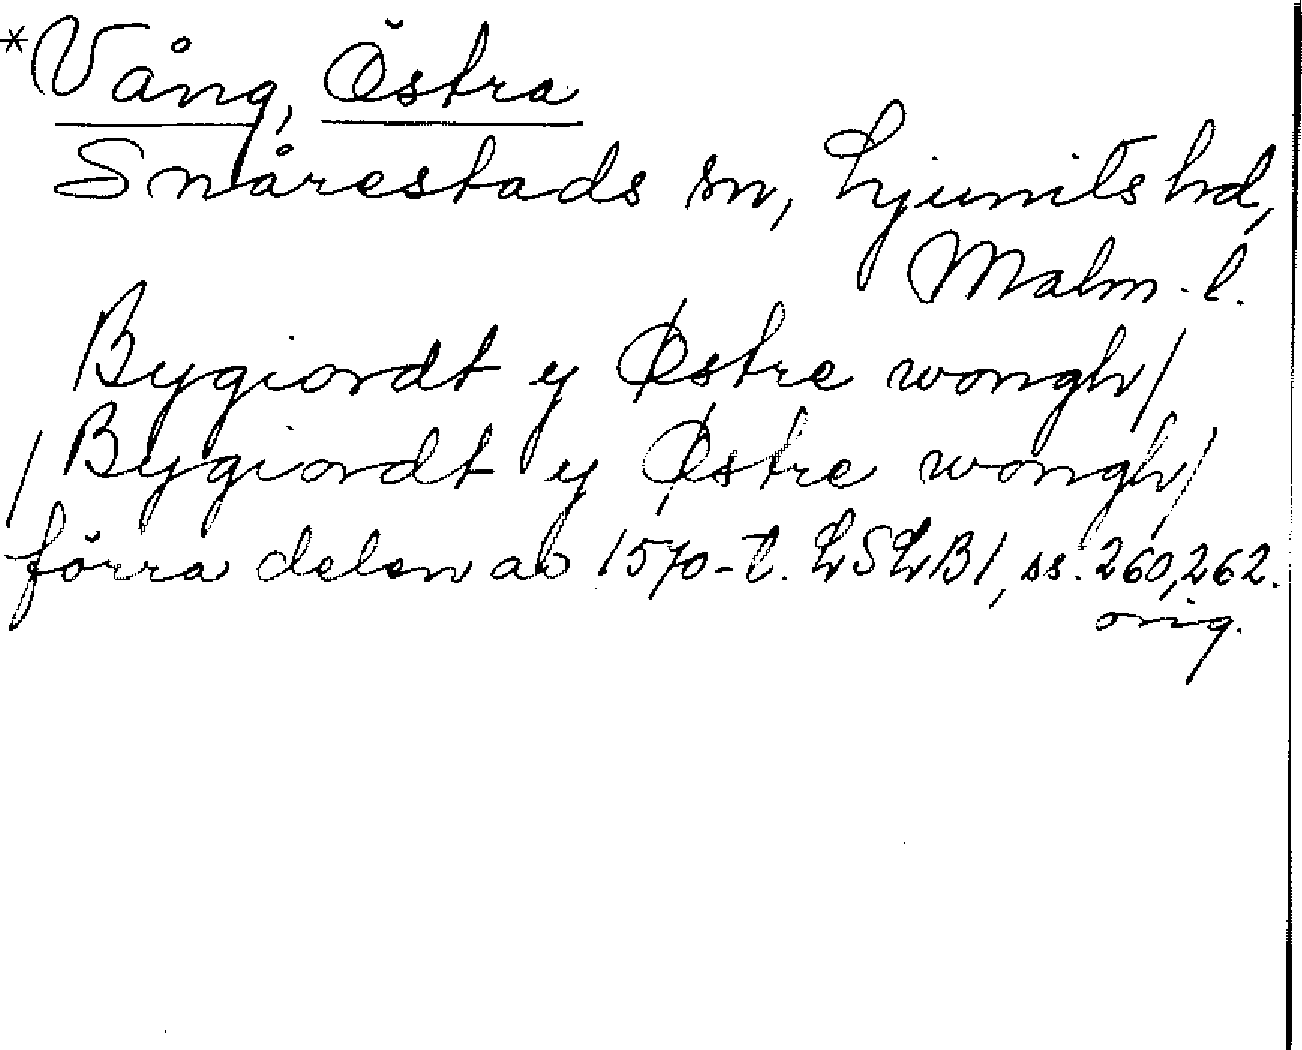 *Vång, Östra
Snårestads sn, Ljunits hd,
Malm. l.
Bygiordt y Østre wongh/
/Bygiordt y Østre wongh/
förra delen av 1570-t. LSLB1, ss. 260, 262.
orig.